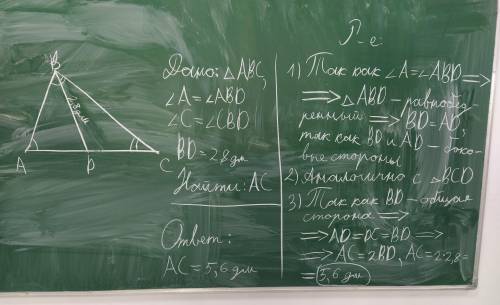 B
2,8 дм
A
D
C
Дано: △ABC,
∠A = ∠ABD
∠C = ∠CBD
BD = 2,8 дм
Найти: AC
Ответ:
AC = 5,6 дм
Р-е
1) Так как ∠A = ∠ABD ⟹
⟹ △ABD – равнобед-
ренный ⟹ BD = AD,
так как BD и AD – боко-
вые стороны
2) Аналогично с △BCD
3) Так как BD – общая
сторона ⟹
⟹ AD = DC = BD ⟹
⟹ AC = 2BD, AC = 2·2,8 =
= 5,6 дм